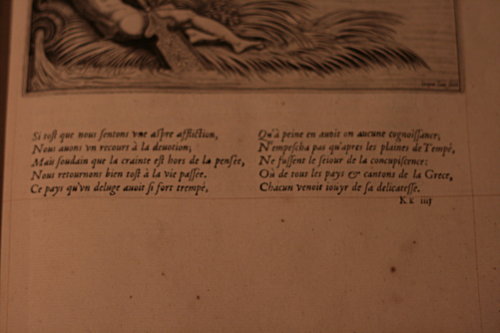 Si tost que nous sentons vne aspre affliction,
Nous auons vn recours à la deuotion;
Mais soudain que la crainte est hors de la pensée,
Nous retournons bien tost à la vie passée.
Ce pays qu'vn deluge auoit si fort trempé,
Qu'à peine en auoit on aucune cognoissance;
N'empescha pas qu'apres les plaines de Tempé,
Ne fussent le seiour de la concupiscence:
Où de tous les pays & cantons de la Grece,
Chacun venoit iouyr de sa delicatesse.
KK iiij